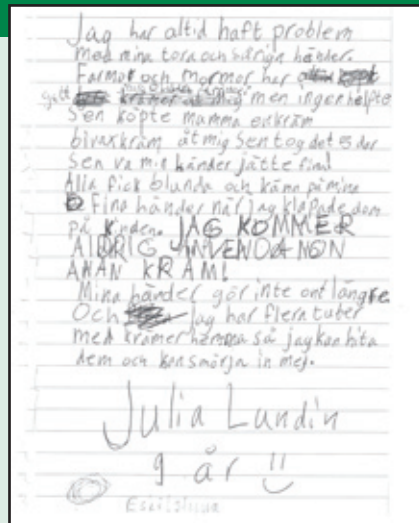 Jag har altid haft problem
med mina tora och såriga händer.
Farmor och Mormor har
gett krämer åt mig men inget hjälpte
Sen köpte mamma en kräm
bivaxkräm åt mig Sen tog det 5 dar
Sen va min händer jätte fina!
Alla fick blunda och känna på mina
Fina händer när jag klapade dom
på kinden. JAG KOMMER
ALDRIG ANVENDA NÅN
ANAN KRÄM!
Mina händer gör inte ont längre
Och jag har flera tuber
med krämer hemma så jag kan hita
dem och kan smörja in mej.
Julia Lundin
9 år
Eskilstuna